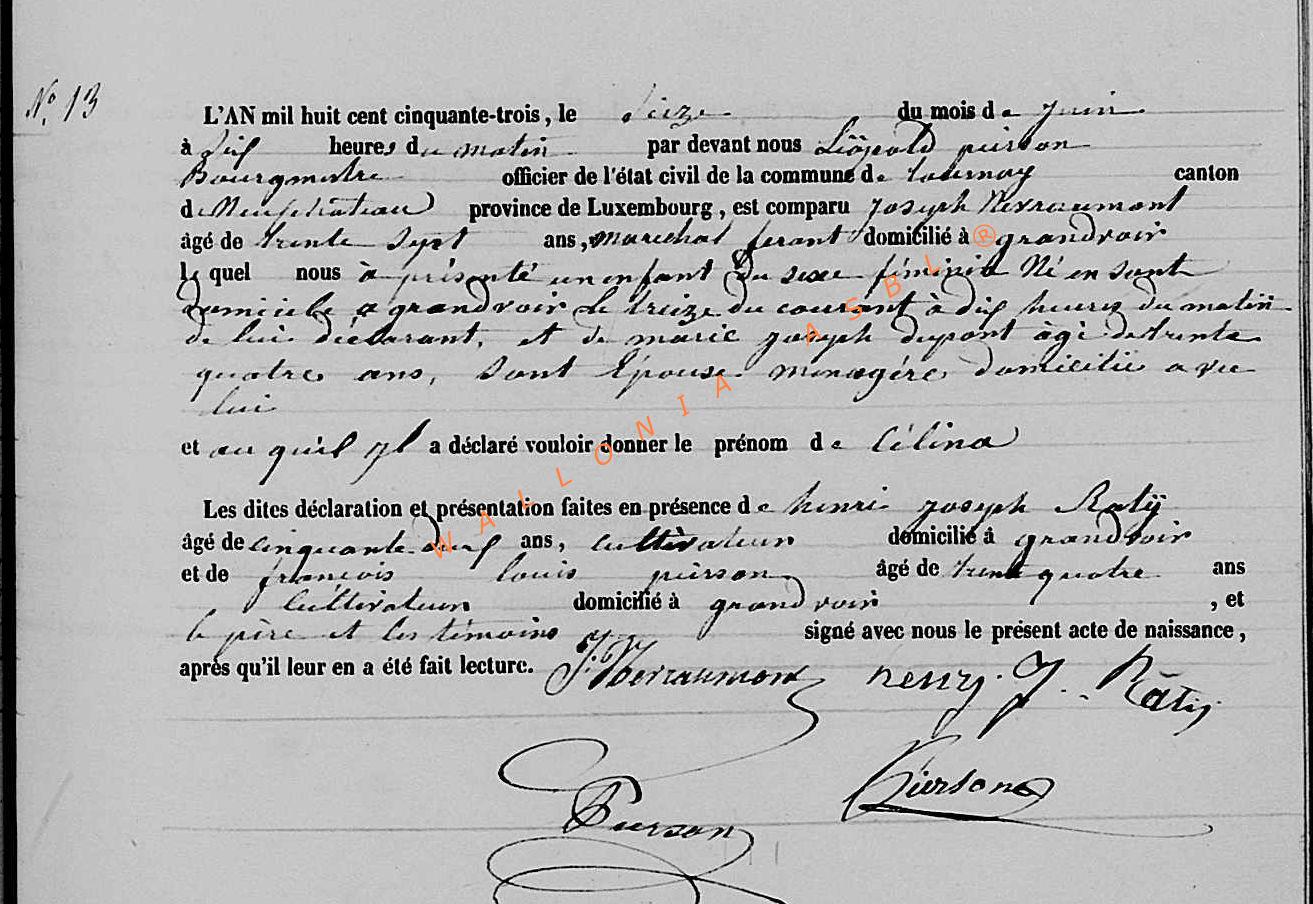 N° 13
L'AN mil huit cent cinquante-trois, le seize du mois de juin
à dix heures du matin par devant nous Léopold pierson
Bourgmestre officier de l'état civil de la commune de tournay canton
de Neufchateau province de Luxembourg, est comparu joseph Nevraumont
âgé de trente sept ans, marechal ferant domicilié à grandvoir
le quel nous à présenté un enfant du sexe féminin Né en sont
domicile a grandvoir le treize du courant à dix heures du matin
de lui déclarant, et de marie joseph dupont âgé de trente
quatre ans, sont épouse menagére domicilié avec
lui
et au quel il a déclaré vouloir donner le prénom de Célina
Les dites déclaration et présentation faites en présence de henri joseph Ratÿ
âgé de cinquante ans, cultivateur domicilié à grandvoir
et de françois louis pierson âgé de trente quatre ans
cultivateur domicilié à grandvoir, et
le père et les témoins signé avec nous le présent acte de naissance,
après qu'il leur en a été fait lecture. J. Nevraumont henry. J. Ratÿ
Pierson
Pierson
WALLONIA ASBL ®